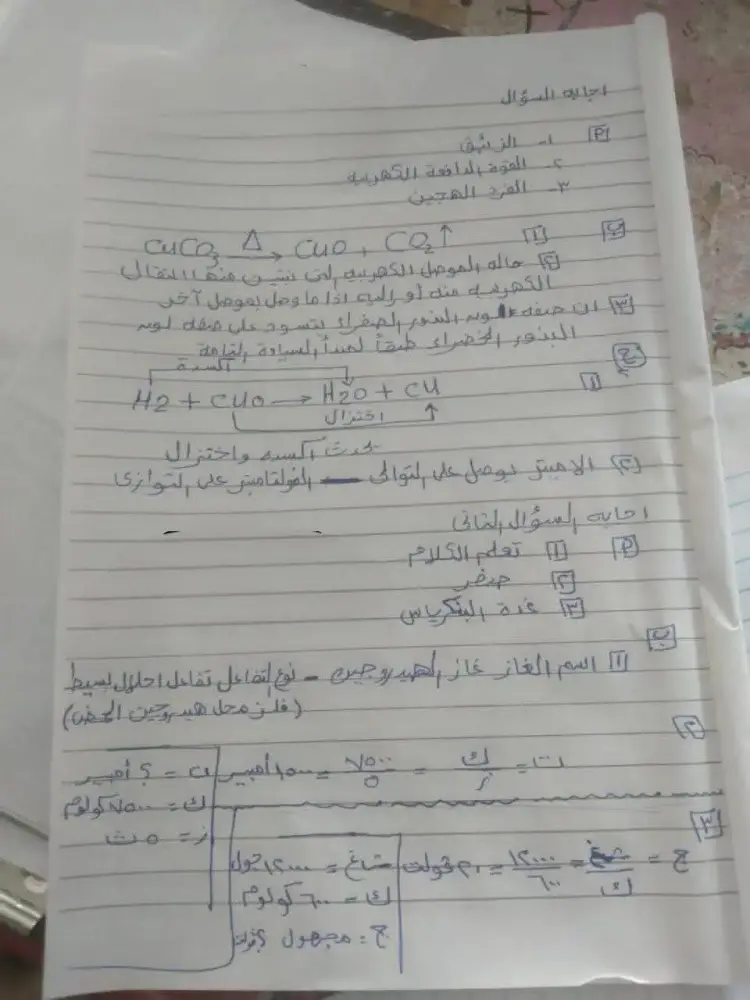 اجابه السؤال
أ ١- الزئبق
٢- القوة الدافعة الكهربيه
٣- الفرد الهجين
ب ١ CuCO3 Δ→ CuO + CO2 ↑
٢ حاله الموصل الكهربيه التى تبين منها انتقال
الكهربيه منه أو إليه اذا ما وصل بموصل آخر
٣ ان صفه لون البذور الصفراء تسود على صفه لون
البذور الخضراء طبقاً لمبدأ السيادة التامة
ج
أكسدة
١ H2 + CuO → H2O + Cu
اختزال
يحدث أكسده واختزال
٢ الاميتر يوصل على التوالى - الفولتاميتر على التوازى
اجابه السؤال الثانى
أ ١ تعلم الكلام
٢ صفر
٣ غدة البنكرياس
ب
١ اسم الغاز غاز الهيدروجين - نوع التفاعل تفاعل احلال بسيط
(فلز محل هيدروجين الحمض)
٢
ت = ك/ز = ٧٥٠٠/٥ = ١٥٠٠ أمبير
ت = ؟ أمبير
ك = ٧٥٠٠ كولوم
ز = ٥ ث
٣
ج = شغ/ك = ١٢٠٠٠/٦٠٠ = ٢٠ فولت
شغ = ١٢٠٠٠ جول
ك = ٦٠٠ كولوم
ج = مجهول ؟ فولت